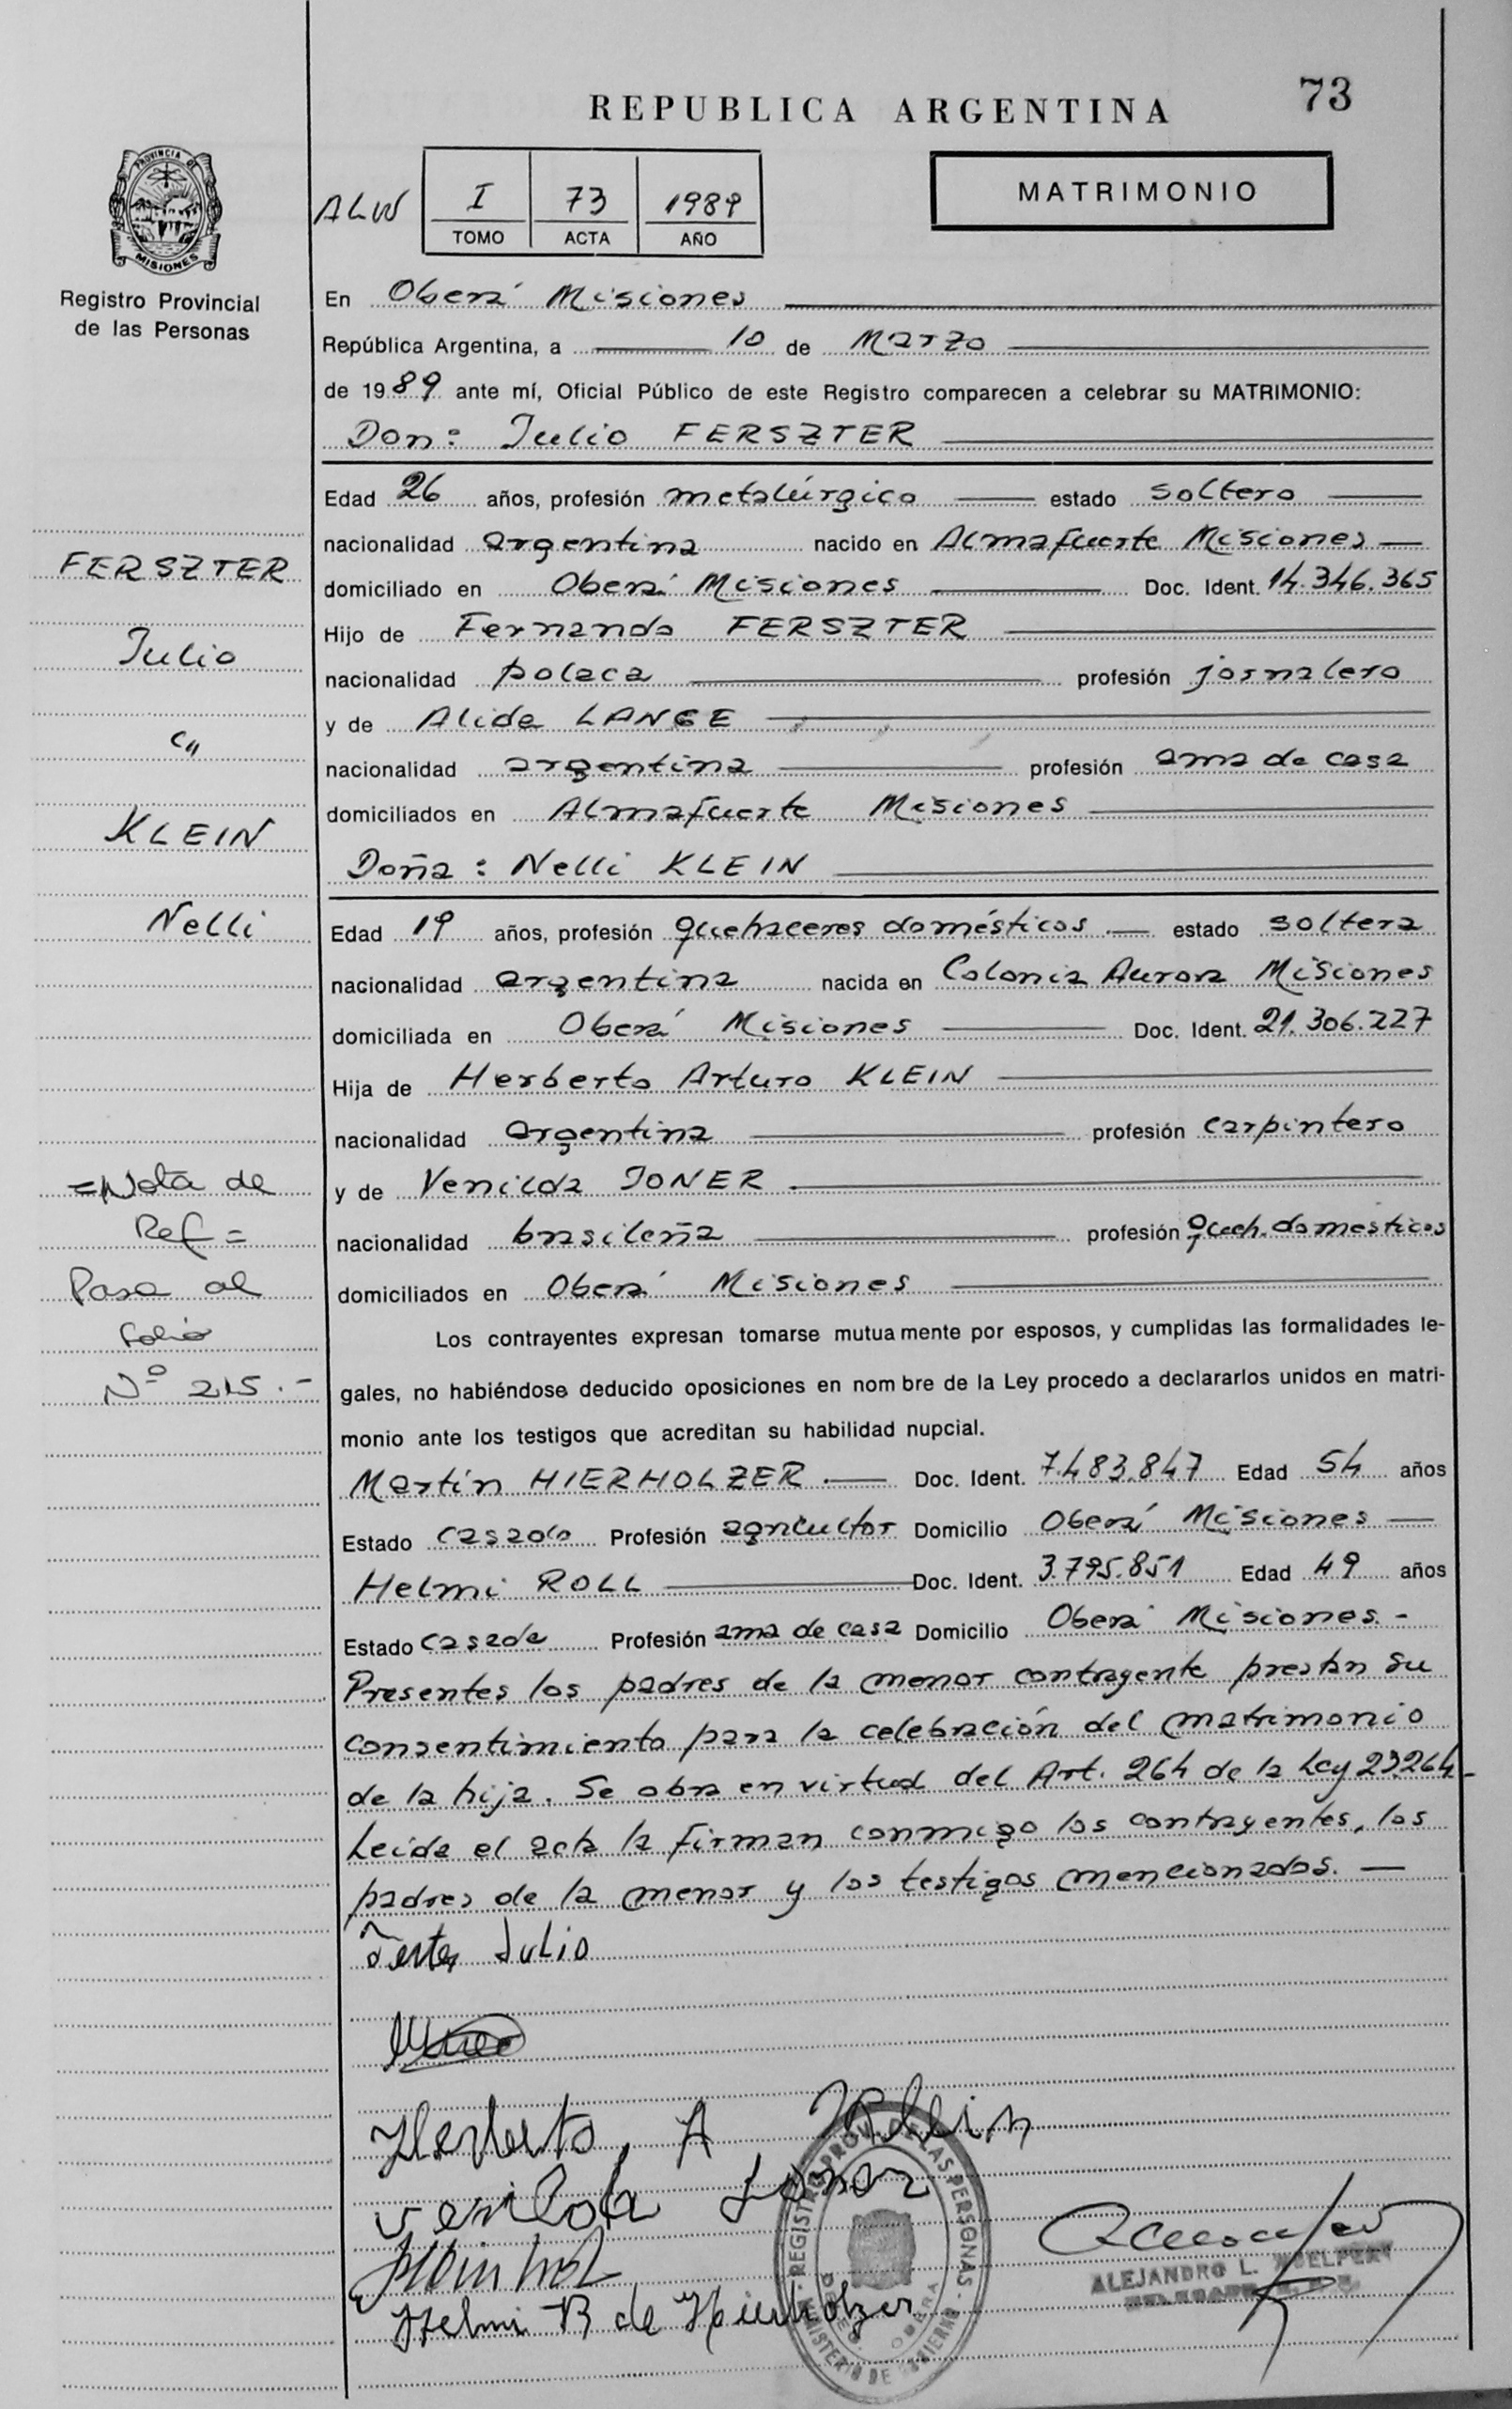 73
REPUBLICA ARGENTINA
PROVINCIA DE
MISIONES
Registro Provincial
de las Personas
ALW
I 73 1989
TOMO ACTA AÑO
MATRIMONIO
En Oberá Misiones
República Argentina, a 10 de Marzo
de 1989 ante mí, Oficial Público de este Registro comparecen a celebrar su MATRIMONIO:
Don: Julio FERSZTER
Edad 26 años, profesión metalúrgico estado soltero
nacionalidad argentina nacido en Almafuerte Misiones
domiciliado en Oberá Misiones Doc. Ident. 14.346.365
Hijo de Fernando FERSZTER
nacionalidad polaca profesión jornalero
y de Alida LANGE
nacionalidad argentina profesión ama de casa
domiciliados en Almafuerte Misiones
Doña: Nelli KLEIN
Edad 19 años, profesión quehaceres domésticos estado soltera
nacionalidad argentina nacida en Colonia Aurora Misiones
domiciliada en Oberá Misiones Doc. Ident. 21.306.227
Hija de Herberto Arturo KLEIN
nacionalidad argentina profesión carpintero
y de Venilda JONER
nacionalidad brasileña profesión queh. domesticos
domiciliados en Oberá Misiones
Los contrayentes expresan tomarse mutuamente por esposos, y cumplidas las formalidades le-
gales, no habiéndose deducido oposiciones en nombre de la Ley procedo a declararlos unidos en matri-
monio ante los testigos que acreditan su habilidad nupcial.
Martín HIERHOLZER Doc. Ident. 7.483.847 Edad 54 años
Estado casado Profesión agricultor Domicilio Oberá Misiones
Helmi ROLL Doc. Ident. 3.795.851 Edad 49 años
Estado casada Profesión ama de casa Domicilio Oberá Misiones.-
Presentes los padres de la menor contrayente prestan su
consentimiento para la celebración del matrimonio
de la hija. Se obra en virtud del Art. 264 de la Ley 23264-
Leida el acta la firman conmigo los contrayentes, los
padres de la menor y los testigos mencionados.
FERSZTER
Julio
c"
KLEIN
Nelli
=Nota de
Ref=
Pasa al
folio
Nº 215.-
Julio
Herberto, A Klein
venilda Joner
Helmi R de Hierholzer
REGISTRO PROV. DE LAS PERSONAS
MINISTERIO DE GOBIERNO
OBERA
ALEJANDRO L.